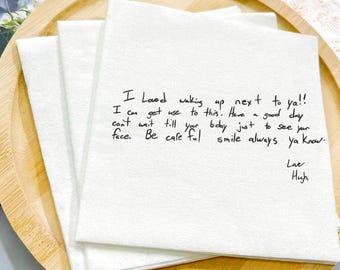 I Loved waking up next to ya!!
I can get use to this. Have a good day
can't wait till your baby just to see your
face. Be careful smile always ya know.
Love
Hugh